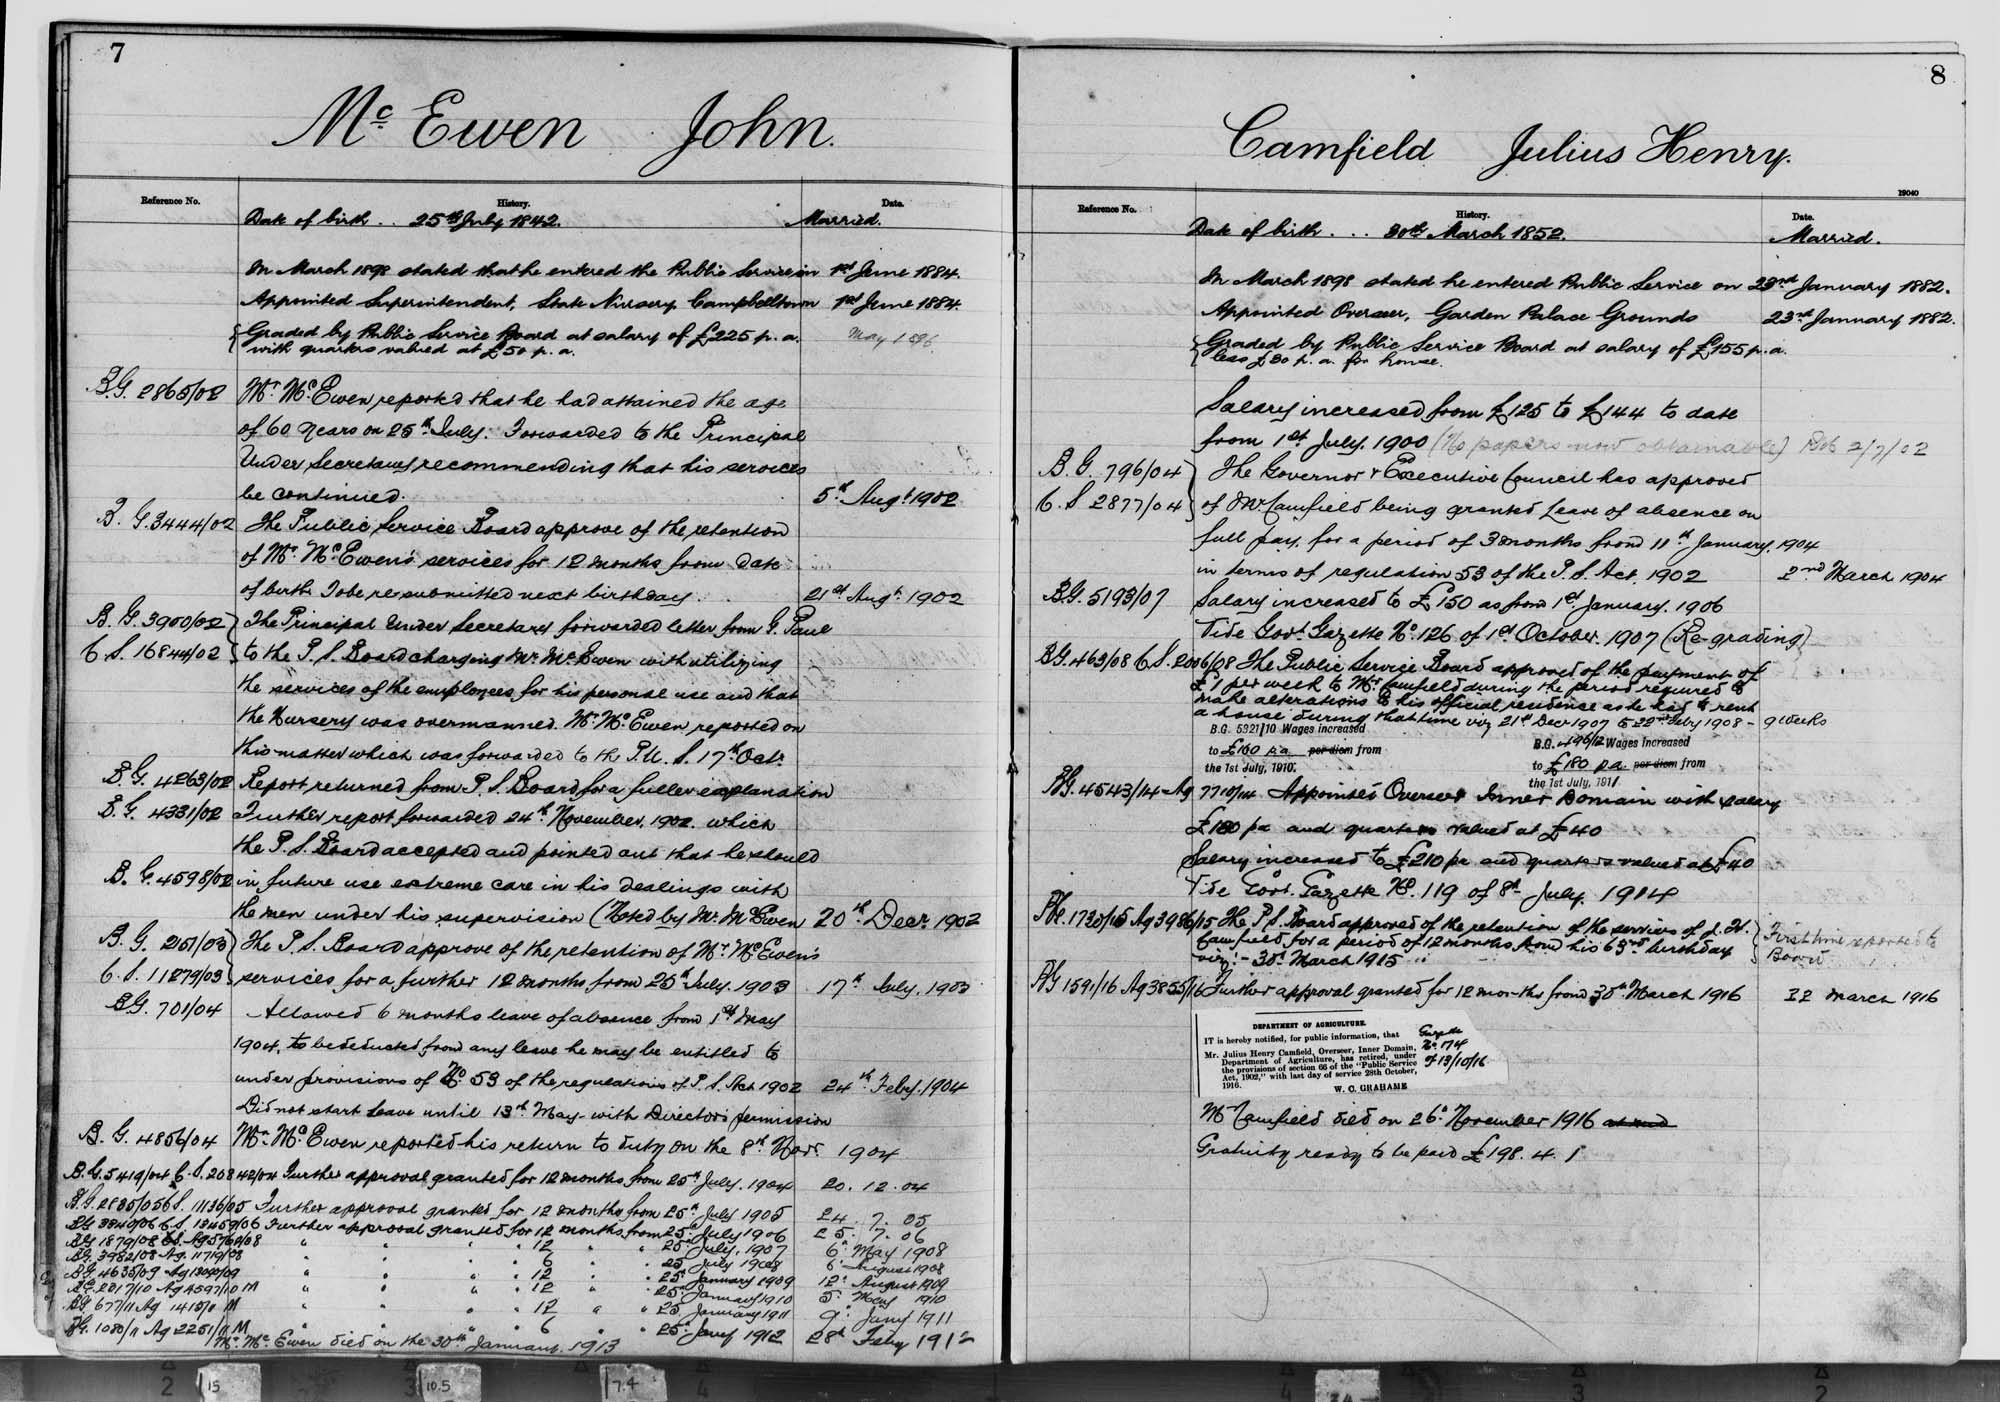 7
Mc Ewen John.
Reference No. History. Date.
Date of birth . . 25th July 1842. Married.
In March 1898 stated that he entered the Public Service on 1st June 1884.
Appointed Superintendent, State Nursery, Campbelltown 1st June 1884.
Graded by Public Service Board at salary of £225 p. a. May 1896
with quarters valued at £50 p. a.
B.G. 2865/02 Mr. McEwen reported that he had attained the age
of 60 years on 25th July. Forwarded to the Principal
Under Secretary recommending that his services
be continued. 5th Augt. 1902
B. G. 3444/02 The Public Service Board approve of the retention
of Mr. McEwen's services for 12 months from date
of birth. To be resubmitted next birthday. 21st Augt. 1902
B. G. 3900/02 The Principal Under Secretary forwarded letter from G. Paul
C. S. 16844/02 to the P. S. Board charging Mr. McEwen with utilizing
the services of the employees for his personal use and that
the Nursery was overmanned. Mr. McEwen reported on
this matter which was forwarded to the P.U. S. 17th Octr.
B. G. 4263/02 Report returned from P. S. Board for a fuller explanation
B. G. 4331/02 Further report forwarded 24th November, 1902. which
the P. S. Board accepted and pointed out that he should
B. G. 4598/02 in future use extreme care in his dealings with
the men under his supervision (Noted by Mr. McEwen 20th Decr. 1902
B. G. 251/03 The P. S. Board approve of the retention of Mr. McEwen's
C. S. 11279/03 services for a further 12 months from 25th July. 1903 17th July. 1903
B.G. 701/04 Allowed 6 months leave of absence from 1st May
1904, to be deducted from any leave he may be entitled to
under provisions of No. 53 of the regulations of P. S. Act 1902 24th Feby. 1904
Did not start leave until 13th May with Director's permission
B. G. 4856/04 Mr. McEwen reported his return to duty on the 8th Novr. 1904
B. G. 5419/04 C. S. 20842/04 Further approval granted for 12 months from 25th July. 1904 20. 12. 04
B. G. 2835/05 C. S. 11136/05 Further approval granted for 12 months from 25th July 1905 24. 7. 05
B.G. 3340/06 C.S. 13459/06 Further approval granted for 12 months from 25th July 1906 25. 7. 06
B.G. 1879/08 Ag 5762/08 " " " 12 " " 25th July. 1907 6th May 1908
B.G. 3982/08 Ag. 11719/08 " " " 6 " " 25 July 1908 6th August 1908
B.G. 4635/09 Ag 13090/09 " " " 12 " " 25th January 1909 12th August 1909
B.G. 2017/10 Ag 4597/10 M " " " 12 " " 25th January 1910 5th May 1910
B.G. 677/11 Ag 1415/11 M " " " 12 " " 25 January 1911 9th Jany 1911
B.G. 1080/11 Ag 2251/11 M " " " 6 " " 25th Jany 1912 28th Feby 1912
Mr. Mc. Ewen died on the 30th January. 1913
8
Camfield Julius Henry.
19040
Reference No. History. Date.
Date of birth . . . 30th March 1852. Married.
In March 1898 stated he entered Public Service on 23rd January 1882.
Appointed Overseer, Garden Palace Grounds 23rd January 1882.
Graded by Public Service Board at salary of £155 p. a.
less £30 p. a. for house.
Salary increased from £125 to £144 to date
from 1st July, 1900 (No papers now obtainable) 2/7/02
B. G. 796/04 The Governor & Executive Council has approved
C. S 2877/04 of Mr Camfield being granted Leave of absence on
full pay, for a period of 3 months from 11th January, 1904
in terms of regulation 53 of the P. S. Act, 1902 2nd March 1904
B.G. 5193/07 Salary increased to £150 as from 1st January. 1906
Vide Govt. Gazette No. 126 of 1st October. 1907 (Re-grading)
B.G. 463/08 C.S. 2006/08 The Public Service Board approved of the payment of
£1 per week to Mr Camfield during the period required to
make alterations to his official residence as he had to rent
a house during that time viz 21st Decr 1907 to 22nd Feby 1908 - 9 weeks
B.G. 5321/10 Wages increased
to £160 p.a. per diem from
the 1st July, 1910.
B.G. 496/12 Wages increased
to £180 p a. per diem from
the 1st July, 1911
B.G. 4543/14 - Ag 7710/14. Appointed Overseer Inner Domain with salary
£180 pa and quarters valued at £40
Salary increased to £210 pa and quarters valued at £40
Vide Govt. Gazette No. 119 of 8th July. 1914
1720/15 Ag 3986/15 The P S. Board approved of the retention of the services of J. H.
Camfield for a period of 12 months from his 63rd birthday
viz: - 30th March 1915 First time reported to
Board
B G 1591/16 Ag 3855/16 Further approval granted for 12 months from 30th March 1916 22 March 1916
DEPARTMENT OF AGRICULTURE.
IT is hereby notified, for public information, that
Mr. Julius Henry Camfield, Overseer, Inner Domain,
Department of Agriculture, has retired, under
the provisions of section 66 of the "Public Service
Act, 1902," with last day of service 28th October,
1916.
W. C. GRAHAME
Gazette
No. 174
of 13/10/16
Mr Camfield died on 26th November 1916
Gratuity ready to be paid £198. 4. 1
2 15 3 10.5 7.4 4
4 3 2